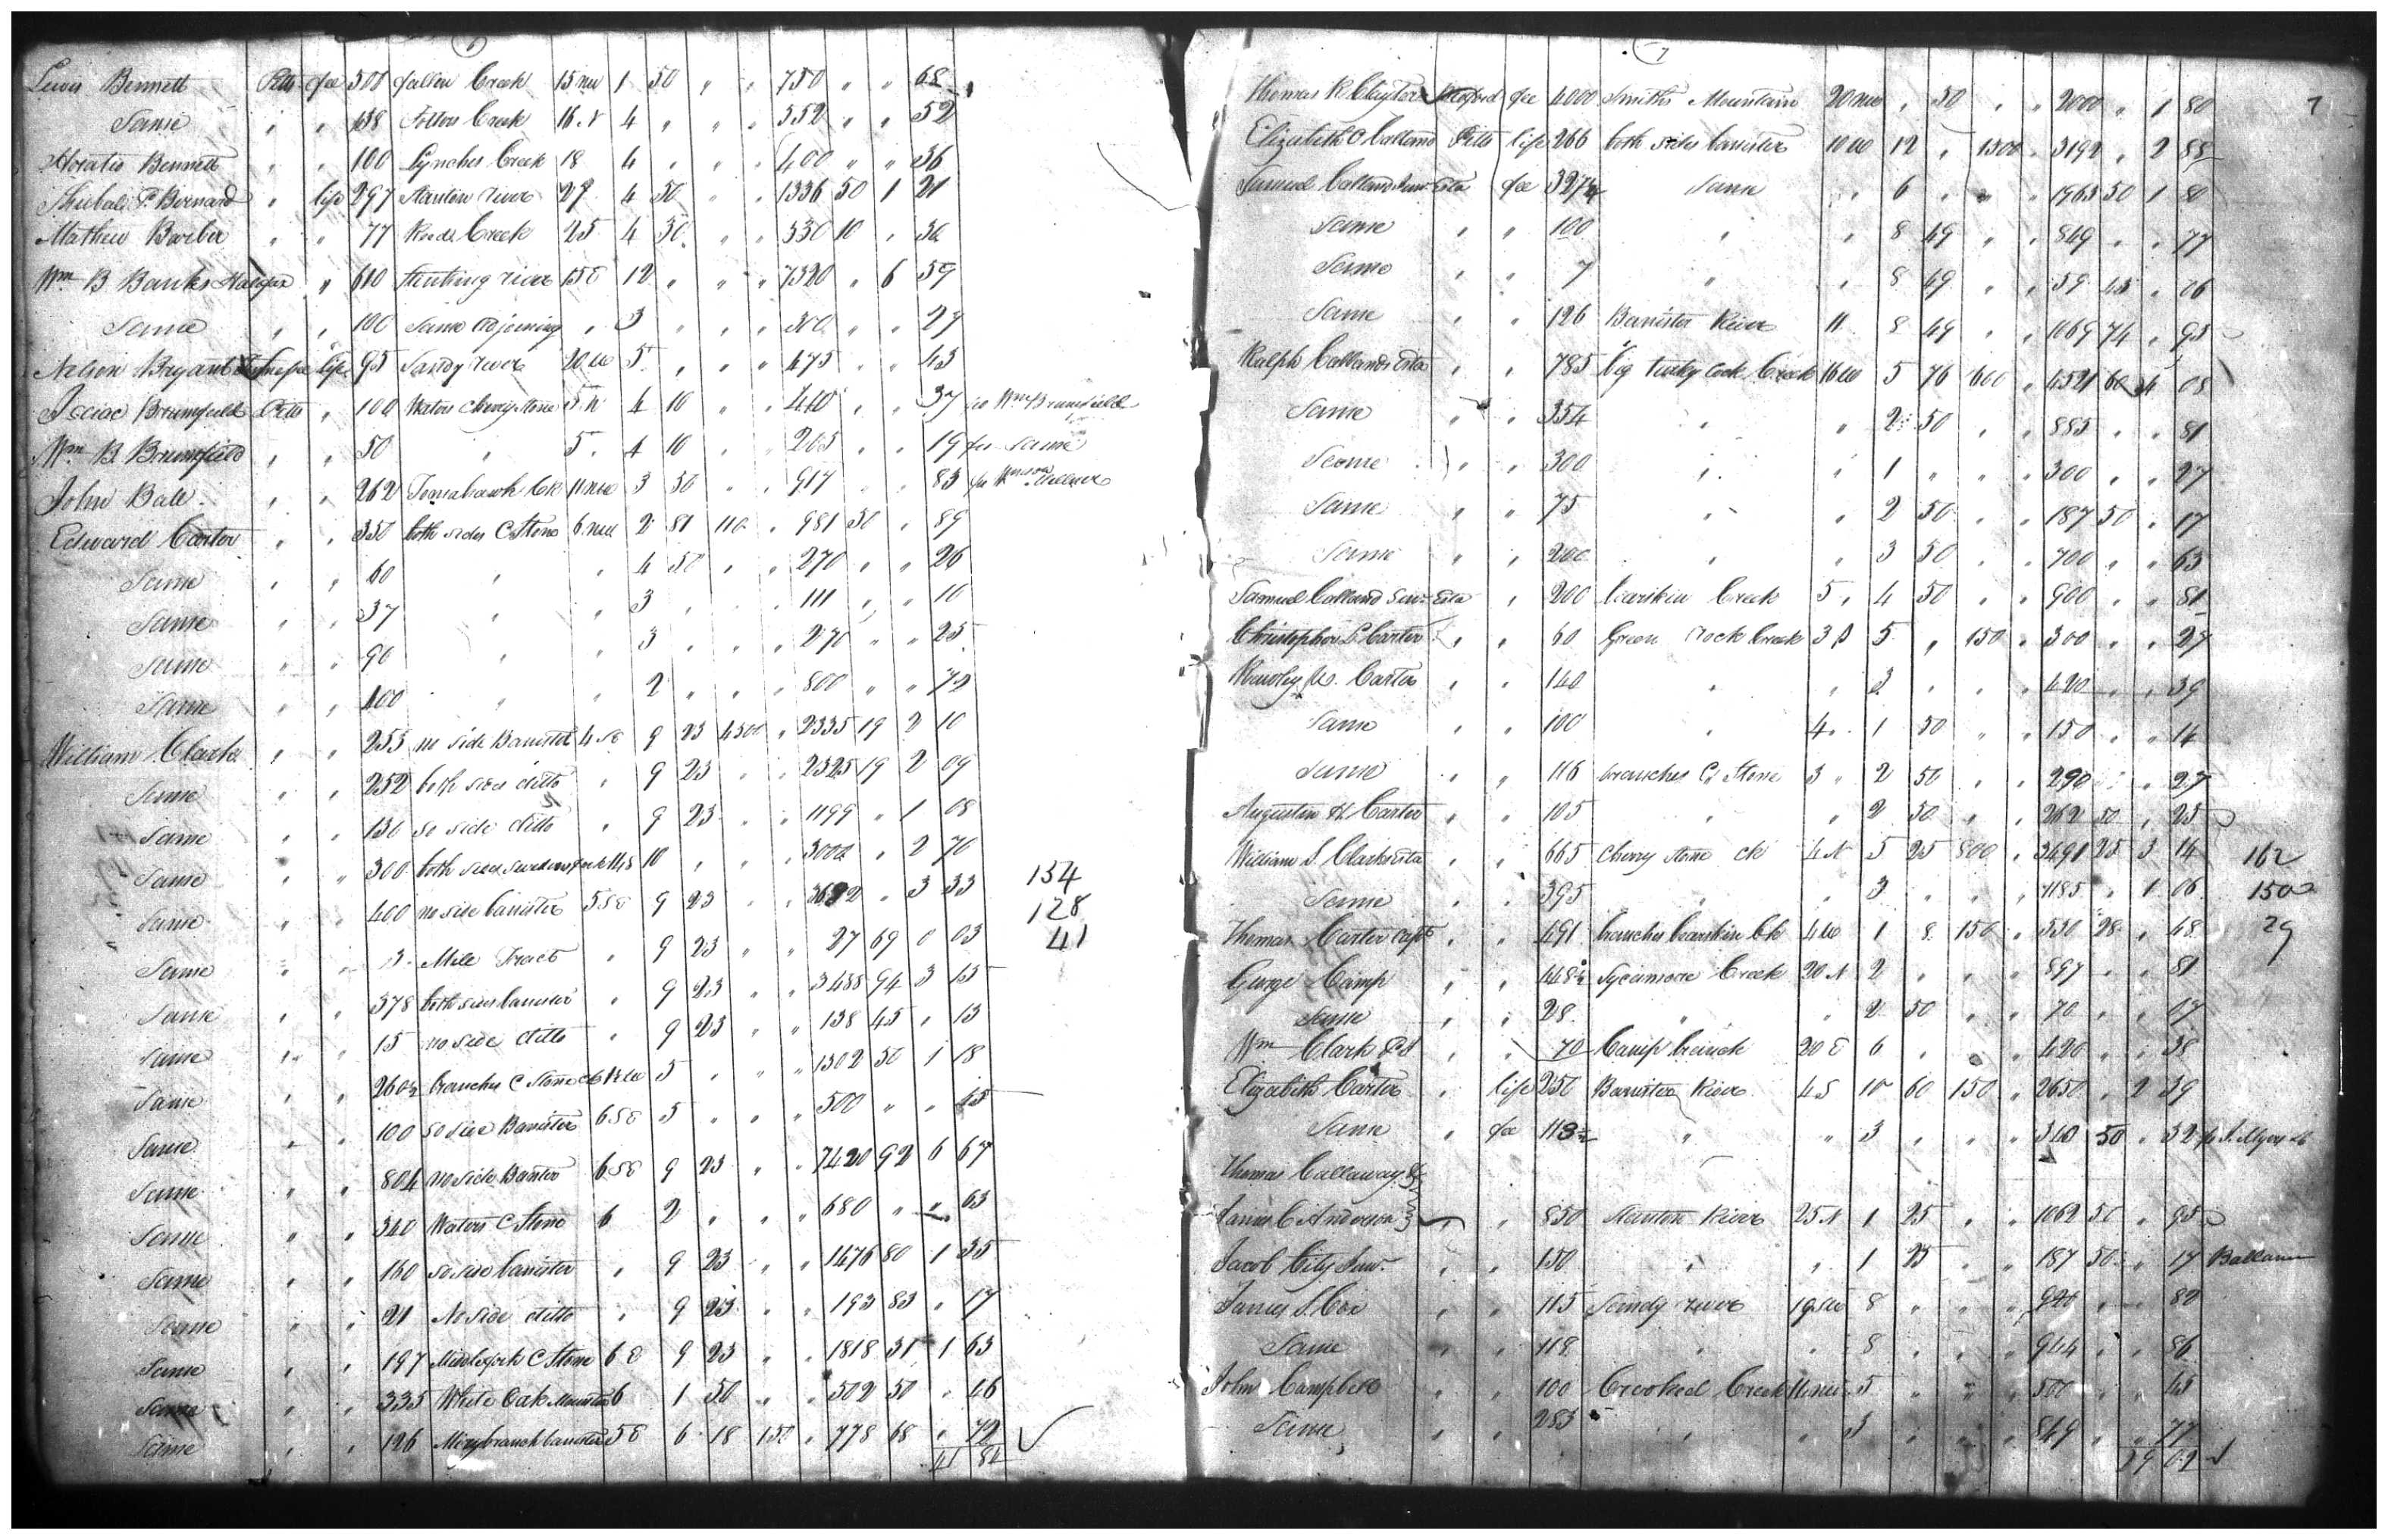 6
Lewis Bennett Pitts fee 500 fallen Creek 15 NW 1 50 " " 750 " " 68
Same " " 138 Creek 16 N 4 " " " 352 " " 52
Horatio Bennett " " 100 Lynches Creek 18 4 " " " 400 " " 36
Shubal T. Bernard " life 297 Stanton river 27 4 50 " " 1336 50 1 21
Mathew Barber " " 77 Reeds Creek 25 4 30 " " 330 10 " 30
Wm B Banks Halifax " 610 river 15 E 12 " " " 7320 " 6 59
Same " " 100 Same adjoining " 3 " " " 300 " " 27
Nelson Bryant life 95 Sandy river 20 W 5 " " " 475 " " 43
Isaac Brumfield Pitts " 100 Waters Cherry Stone 5 N 4 10 " " 410 " " 37 pr Wm Brumfield
Wm B Brumfield " " 50 " 5 " 4 10 " " 205 " " 19 pr Same
John Ball " " 262 Tomahawk Ck 11 NW 3 50 " " 917 " " 83
Edward Carter " " 350 both sides C Stone 6 NW 2 81 110 " 981 30 " 89
Same " " 60 " " 4 50 " " 270 " " 26
Same " " 37 " " 3 " " " 111 " " 10
Same " " 90 " " 3 " " " 270 " " 25
Same " " 400 " " 2 " " " 800 " " 72
William Clark " " 253 no side Banister 4 SE 9 23 1300 " 2335 19 2 10
Same " " 252 both sides ditto " 9 23 " " 2325 19 2 09
Same " " 130 so side ditto " 9 23 " " 1199 " 1 08
Same " " 300 both sides 11 S 10 " " " 3000 " 2 70
Same " " 400 no side banister 5 SE 9 23 " " 3692 " 3 33 134
Same " " 3 Mill Tract " 9 23 " " 27 69 0 03 128
Same " " 378 both sides banister " 9 23 " " 3488 94 3 15 41
Same " " 15 no side ditto " 9 23 " " 138 45 " 13
Same " " 260½ branches C Stone 5 " " " 1302 50 1 18
Same " " 100 so side Banister 6 SE 5 " " " 500 " " 45
Same " " 804 no side Banister 6 SE 9 23 " " 7420 92 6 67
Same " " 340 Waters C Stone 6 2 " " " 680 " " 63
Same " " 160 so side banister " 9 23 " " 1476 80 1 35
Same " " 21 No side ditto " 9 23 " " 193 83 " 17
Same " " 197 Middlefork C Stone 6 E 9 23 " " 1818 31 1 63
Same " " 335 White Oak Mountain 6 1 50 " " 502 50 " 46
Same " " 126 branch banister 5 E 6 18 150 " 778 68 " 72
41 82
7
Thomas R Clayton Bedford fee 4000 Smiths Mountain 20 NW " 50 " " 2000 " 1 80 7
Elizabeth C Calland Pitts life 266 both sides banister 10 W 12 " 1500 " 3192 " 2 88
Samuel Calland Junr Esta fee 327¼ Same " 6 " " " 1963 50 1 80
Same " " 100 " " 8 49 " " 849 " " 77
Same " " 7 " " 8 49 " " 59 43 " 06
Same " " 126 Banister River 11 8 49 " " 1069 74 " 95
Ralph Callands Esta " " 785 big turky Cock Creek 16 W 5 76 600 " 4521 60 4 08
Same " " 354 " " 2 50 " " 885 " " 81
Same " " 300 " " 1 " " " 300 " " 27
Same " " 75 " " 2 50 " " 187 50 " 17
Same " " 200 " " 3 50 " " 700 " " 63
Samuel Calland Senr Esta " 200 bearskin Creek 5 " 4 50 " " 900 " " 81
Christopher L Carter " " 60 Green rock Creek 3 S 5 " 150 " 300 " " 27
Rawley W. Carter " " 140 " " 3 " " " 420 " " 39
Same " " 100 " 4 " 1 50 " " 150 " " 14
Same " " 116 branches C Stone 3 " 2 50 " " 290 " " 27
Augustin H Carter " " 105 " " 2 50 " " 262 50 " 25
William S. Clarks esta " " 665 Cherry stone ck 4 N 5 25 800 " 3491 25 3 14 162
Same " " 395 " " 3 " " " 1185 " 1 06 150
Thomas Carter capt " " 491 branches bearskin Ck 4 W 1 8 150 " 530 28 " 48 29
George Camp " " 448½ Sycamore Creek 20 N 2 " " " 897 " " 81
Same " " 28 " " 2 50 " " 70 " " 07
Wm Clark " " 70 Camp branch 20 E 6 " " " 420 " " 38
Elizabeth Carter " life 250 Banister River 4 S 10 60 150 " 2650 " 2 39
Same " fee 113½ " " 3 " " " 340 50 " 32
Thomas Callaway &
James C Anderson " " 850 Stanton River 25 N 1 25 " " 1062 50 " 95
Jacob City Junr " " 150 " " 1 25 " " 187 50 " 17
James S. Cox " " 115 Sandy river 19 SW 8 " " " 920 " " 82
Same " " 118 " " 8 " " " 944 " " 86
John Campbell " " 100 Crooked Creek 5 " " " 500 " " 45
Same " " 283 " " 3 " " " 849 " " 77
29 02